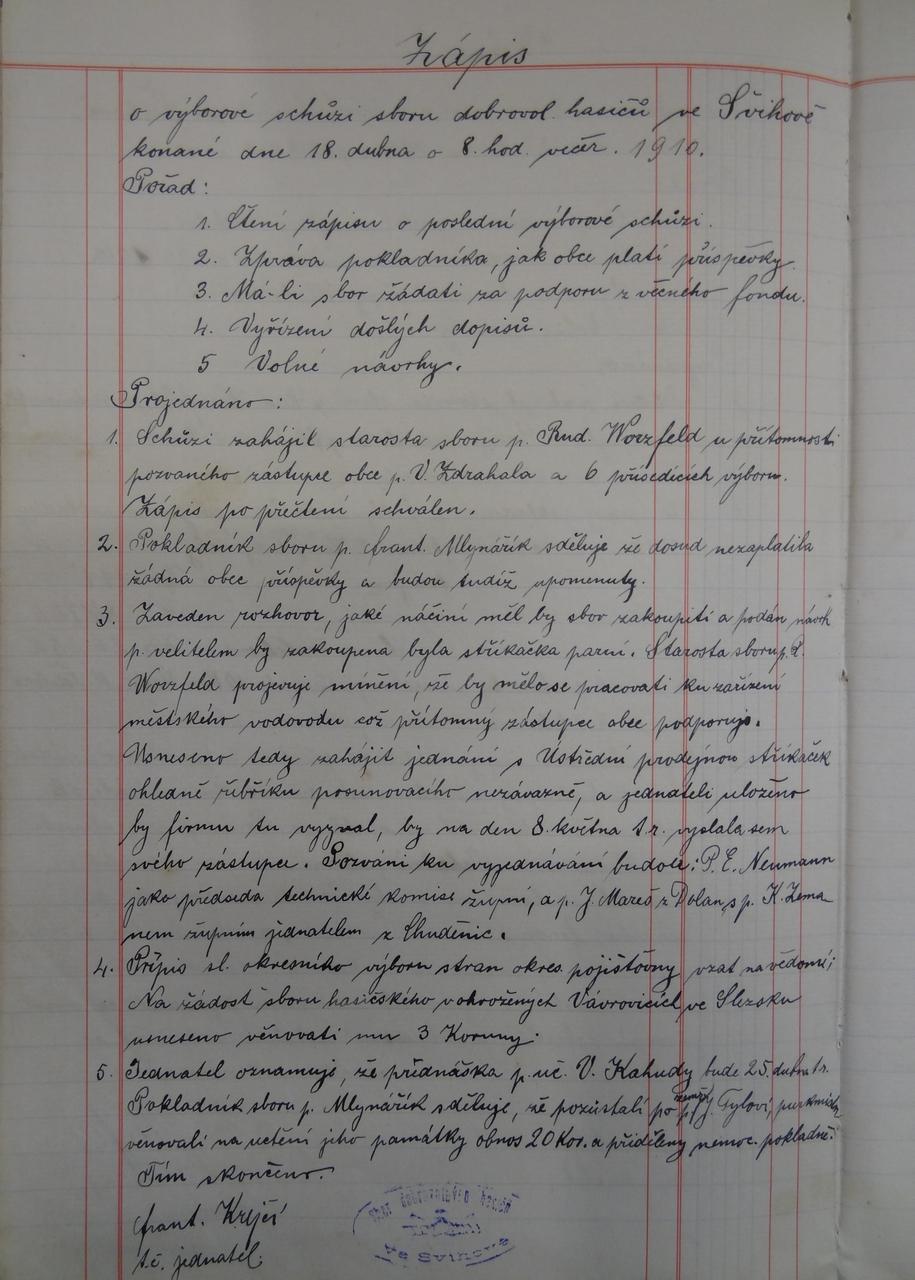 Zápis
o výborové schůzi sboru dobrovol. hasičů ve Švihově
konané dne 18. dubna o 8. hod. večer. 1910.
Pořad:
1. Čtení zápisu o poslední výborové schůzi.
2. Zpráva pokladníka, jak obce platí příspěvky.
3. Má-li sbor žádati za podporu z věčného fondu.
4. Vyřízení došlých dopisů.
5 Volné návrhy.
Projednáno:
1. Schůzi zahájil starosta sboru p. Rud. Worzfeld u přítomnosti
pozvaného zástupce obce p. V. Zdrahala a 6 přísedících výboru.
Zápis po přečtení schválen.
2. Pokladník sboru p. Frant. Mlynářík sděluje že dosud nezaplatila
žádná obec příspěvky a budou tudíž upomenuty.
3. Zaveden rozhovor, jaké náčiní měl by sbor zakoupiti a podán návrh
p. velitelem by zakoupena byla stříkačka parní. Starosta sboru p. R.
Worzfeld projevuje mínění, že by mělo se pracovati ku zařízení
městského vodovodu což přítomný zástupce obce podporuje.
Usneseno tedy zahájit jednání s Ústřední prodejnou stříkaček
ohledně žebříku posunovacího nezávazně, a jednateli uloženo
by firmu tu vyzval, by na den 8. května t.r. vyslala sem
svého zástupce. Pozváni ku vyjednávání budou: P. E. Neumann
jako předseda technické komise župní, a p. J. Mareš z Dolan, s p. K. Zema
nem župním jednatelem z Chudenic.
4. Přípis sl. okresního výboru stran okres. pojišťovny vzat na vědomí;
Na žádost sboru hasičského v ohrožených Vávrovicích ve Slezsku
usneseno věnovati mu 3 Koruny.
5. Jednatel oznamuje, že přednáška p. uč. V. Kahudy bude 25. dubna t.r.
Pokladník sboru p. Mlynářík sděluje, že pozůstalí po zemř. p. J. Tylovi,
věnovali na uctění jeho památky obnos 20 Kor. a přiděleny nemoc. pokladně.
Tím skončeno.
Frant. Krejčí
t.č. jednatel.
Sbor dobrovolných hasičů
ve Švihově